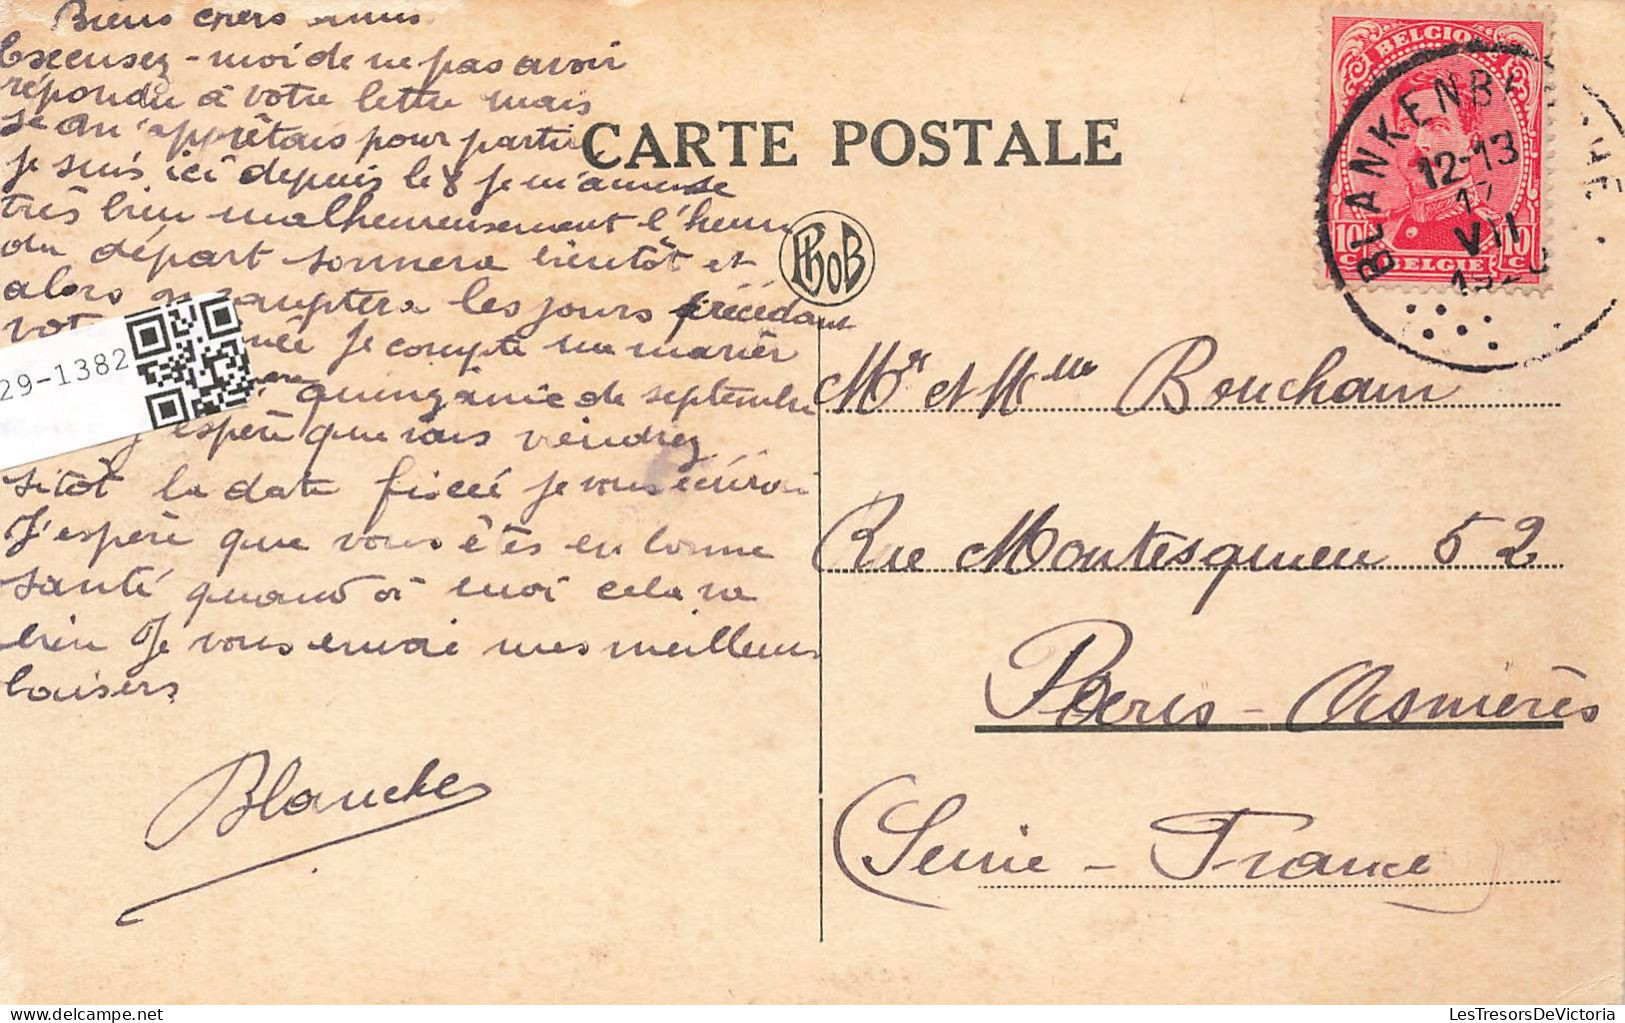 Biens chers amis
Excusez-moi de ne pas avoir
répondu à votre lettre mais
je m'apprêtais pour partir
je suis ici depuis le 8 je m'amuse
très bien malheureusement l'heure
du départ sonnera bientôt et
alors on comptera les jours précédant
vot
je compte
quinzaine de septembre
j'espère que vous viendrez
sitôt la date fixée je vous écrirai
J'espère que vous êtes en bonne
santé quand à moi cela va
bien Je vous envoie mes meilleurs
baisers
Blanche
29-1382
CARTE POSTALE
PhoB
BELGIQUE
10c 10c
BELGIE
BLANKENBERGHE
12-13
17
VII
Mr et Mme Boucham
Rue Montesquieu 52
Paris - Asnières
(Seine - France)
LesTresorsDeVictoria